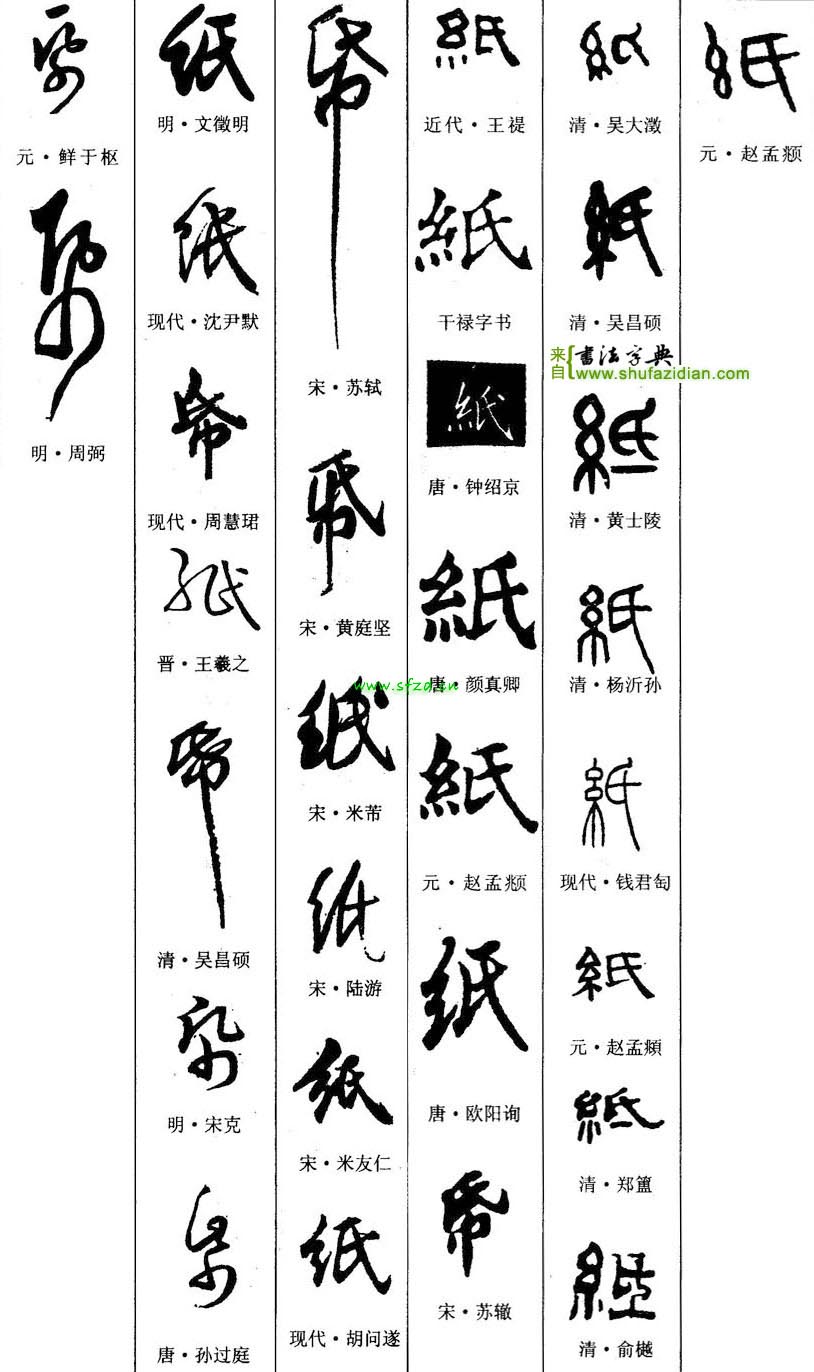 紙
元·赵孟𫖯
紙
清·吴大澂
紙
清·吴昌硕
来自{書法字典
www.shufazidian.com
紙
清·黄士陵
紙
清·杨沂孙
紙
现代·钱君匋
紙
元·赵孟頫
紙
清·郑簠
紙
清·俞樾
紙
近代·王禔
紙
干禄字书
紙
唐·钟绍京
紙
唐·颜真卿
紙
元·赵孟𫖯
紙
唐·欧阳询
帋
宋·苏辙
帋
宋·苏轼
帋
宋·黄庭坚
www.sfzd.cn
紙
宋·米芾
紙
宋·陆游
紙
宋·米友仁
紙
现代·胡问遂
紙
明·文徵明
紙
现代·沈尹默
帋
现代·周慧珺
紙
晋·王羲之
帋
清·吴昌硕
帋
明·宋克
帋
唐·孙过庭
帋
元·鲜于枢
帋
明·周弼